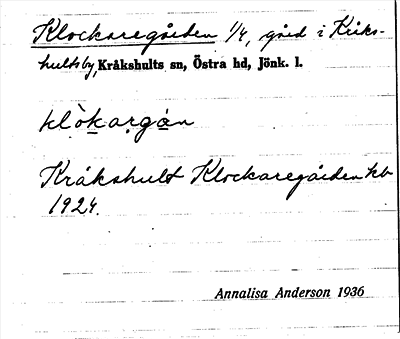 Klockaregården 1/4, gård i Kråks-
hults by, Kråkshults sn, Östra hd, Jönk. l.
klòkargán
Kråkshult Klockaregården kb
1924.
Annalisa Anderson 1936